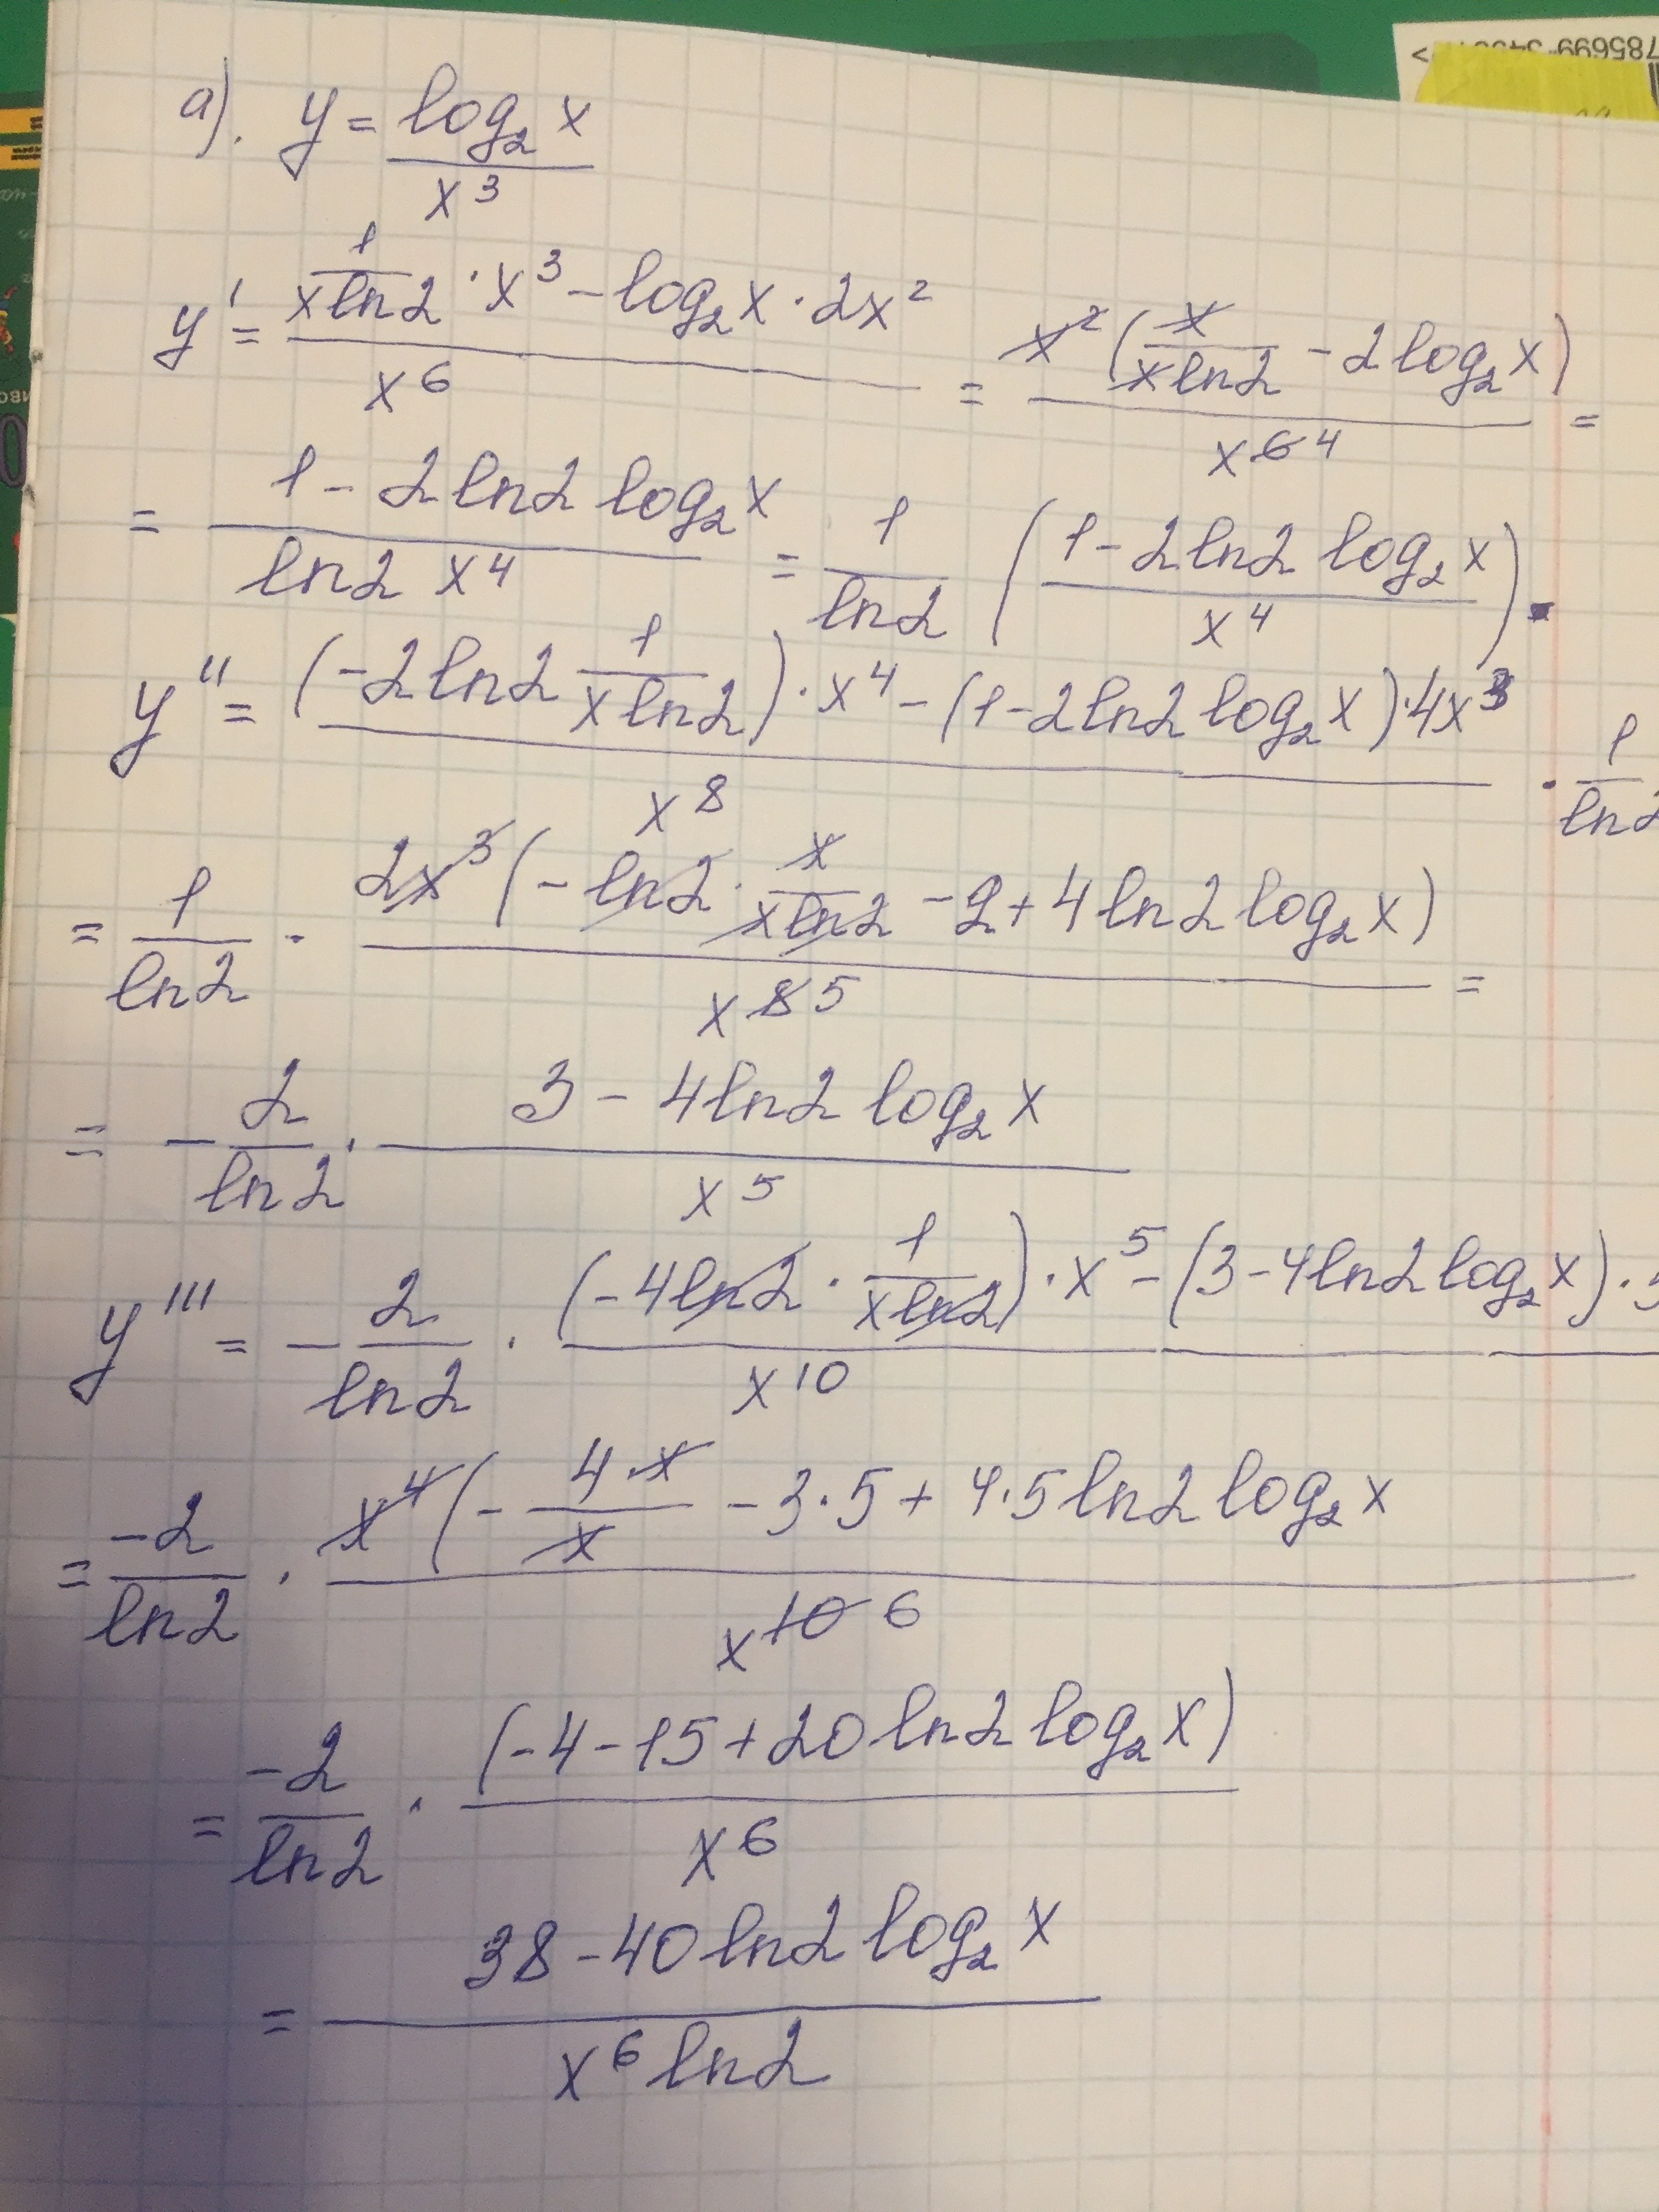 785699
a). y = log₂ x / x³
y' = (1/(x ln2) · x³ - log₂ x · 2x²) / x⁶ = x²(x/(x ln2) - 2 log₂ x) / x⁶ ⁴ =
= (1 - 2 ln2 log₂ x) / (ln2 x⁴) = 1/ln2 ((1 - 2 ln2 log₂ x) / x⁴).
y'' = ((-2 ln2 1/(x ln2)) · x⁴ - (1 - 2 ln2 log₂ x) · 4x³) / x⁸ · 1/ln2
= 1/ln2 · 2x³(- ln2 · x/(x ln2) - 2 + 4 ln2 log₂ x) / x⁸ ⁵ =
= - 2/ln2 · (3 - 4 ln2 log₂ x) / x⁵
y''' = - 2/ln2 · ((-4 ln2 · 1/(x ln2)) · x⁵ - (3 - 4 ln2 log₂ x) · 5 / x¹⁰
= -2/ln2 · x⁴(- 4·x/x - 3·5 + 4·5 ln2 log₂ x / x¹⁰ ⁶
= -2/ln2 · (-4 - 15 + 20 ln2 log₂ x) / x⁶
= (38 - 40 ln2 log₂ x) / (x⁶ ln2)